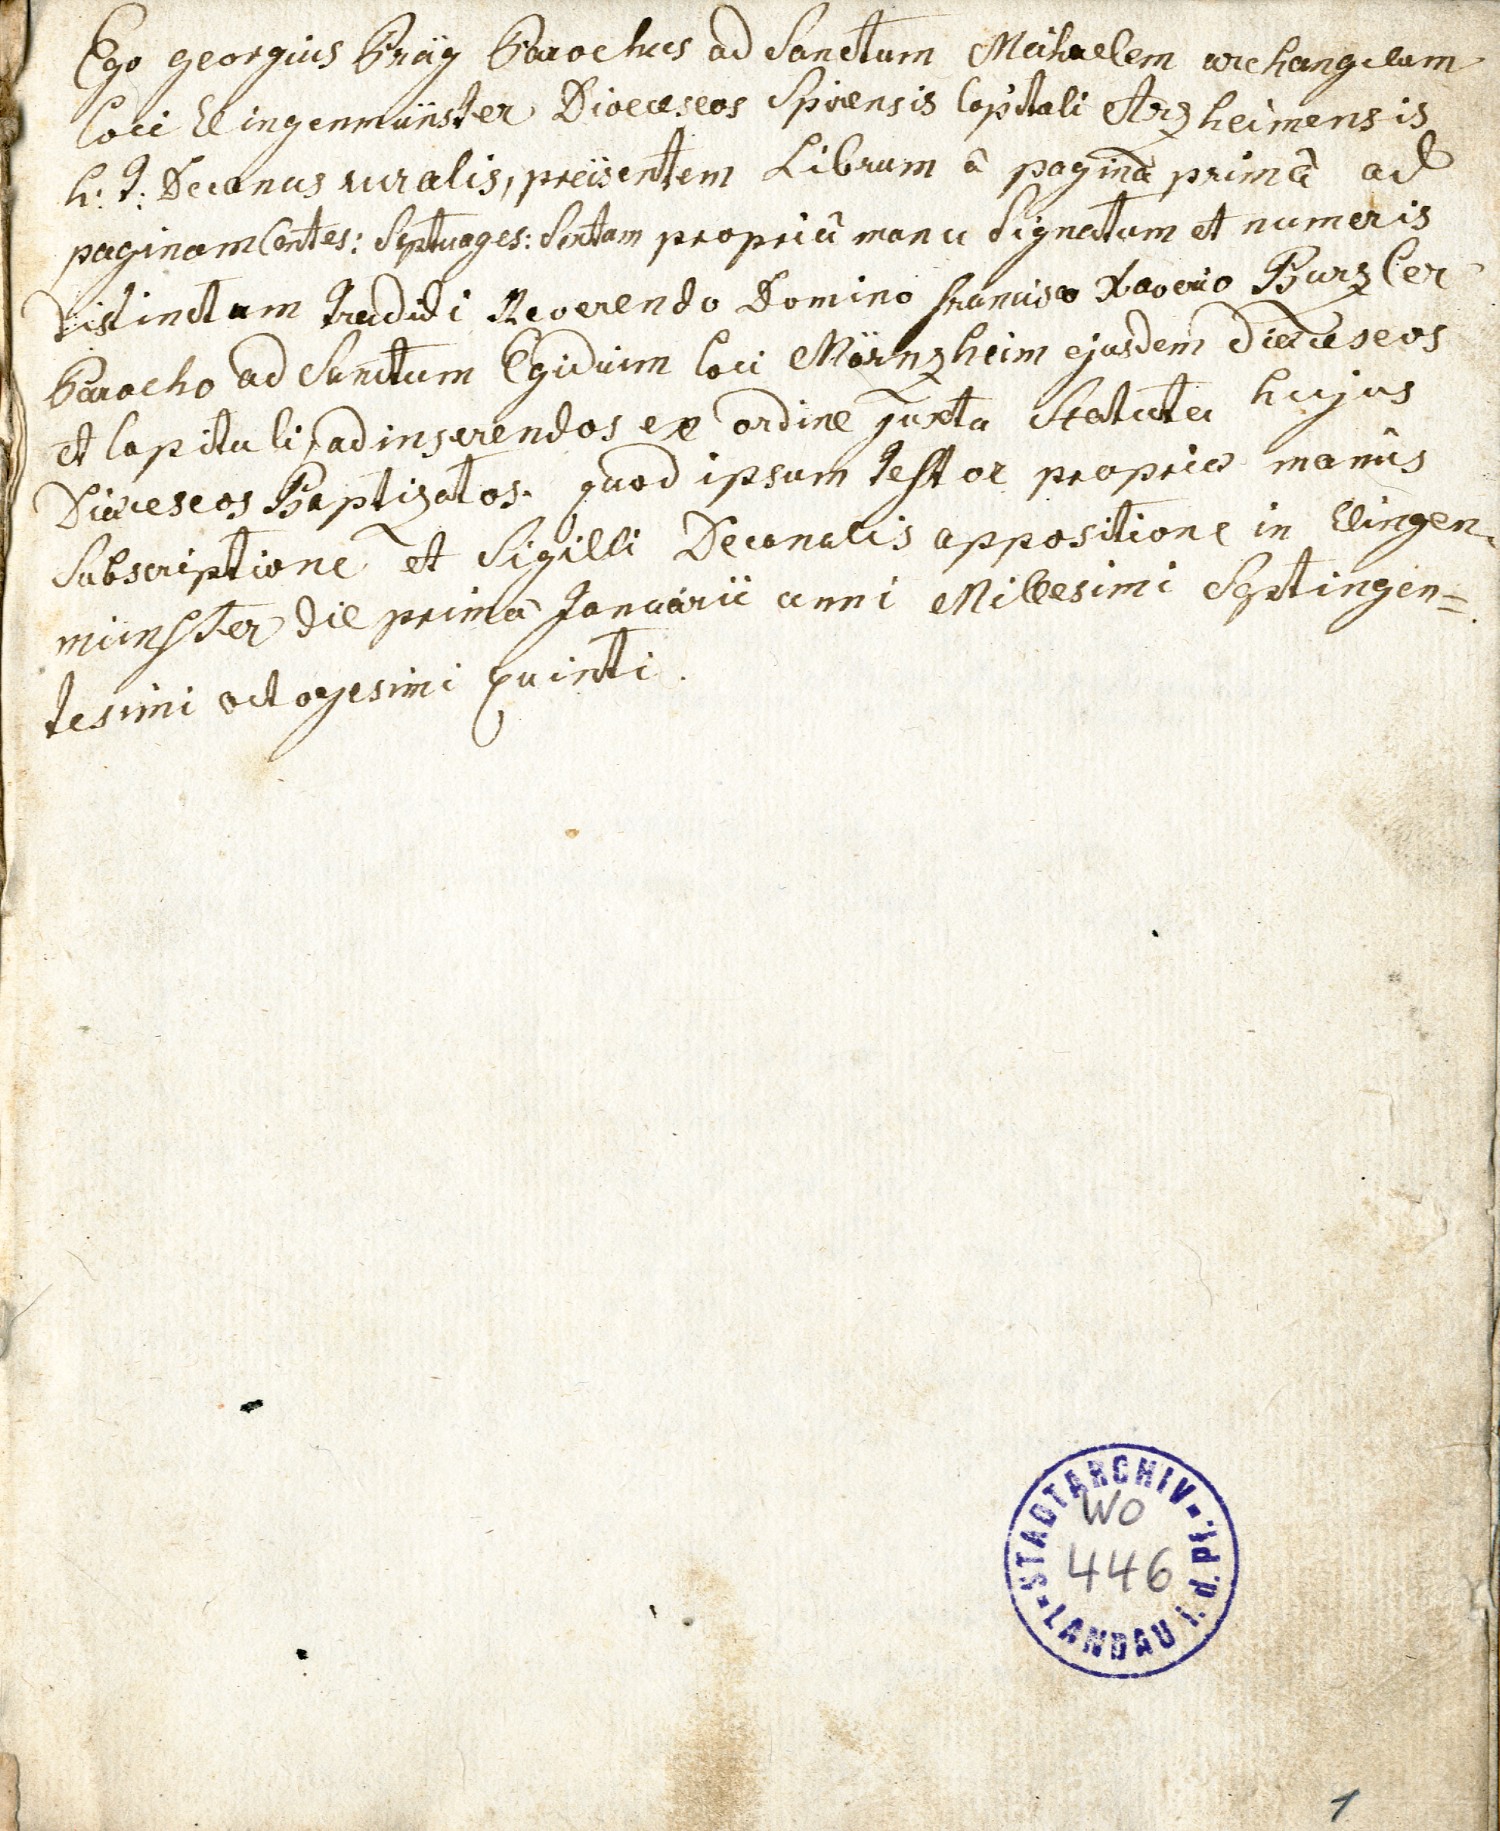 Ego georgius Präy Parochus ad Sanctum Michaelem archangelum
loci Clingenmünster Dioeceseos Spirensis Capituli Arzheimensis
h: t: Decanus ruralis, præsentem Librum â paginâ primâ ad
paginam Centes: Septuages: Sextam propriâ manu Signatum et numeris
distinctum tradidi Reverendo Domino francisco Xaverio Burzler
Parocho ad Sanctum Egidium loci Mörnzheim ejusdem Diœceseos
et Capituli, ad inserendos ex ordine juxta Statuta hujus
Diœceseos Baptizatos. quod ipsum testor propriæ manûs
Subscriptione et Sigilli Decanalis appositione in Clingen-
münster die primâ Januarii anni Millesimi Septingen=
tesimi octogesimi quinti.
STADTARCHIV - LANDAU i. d. Pf. -
WO
446
1